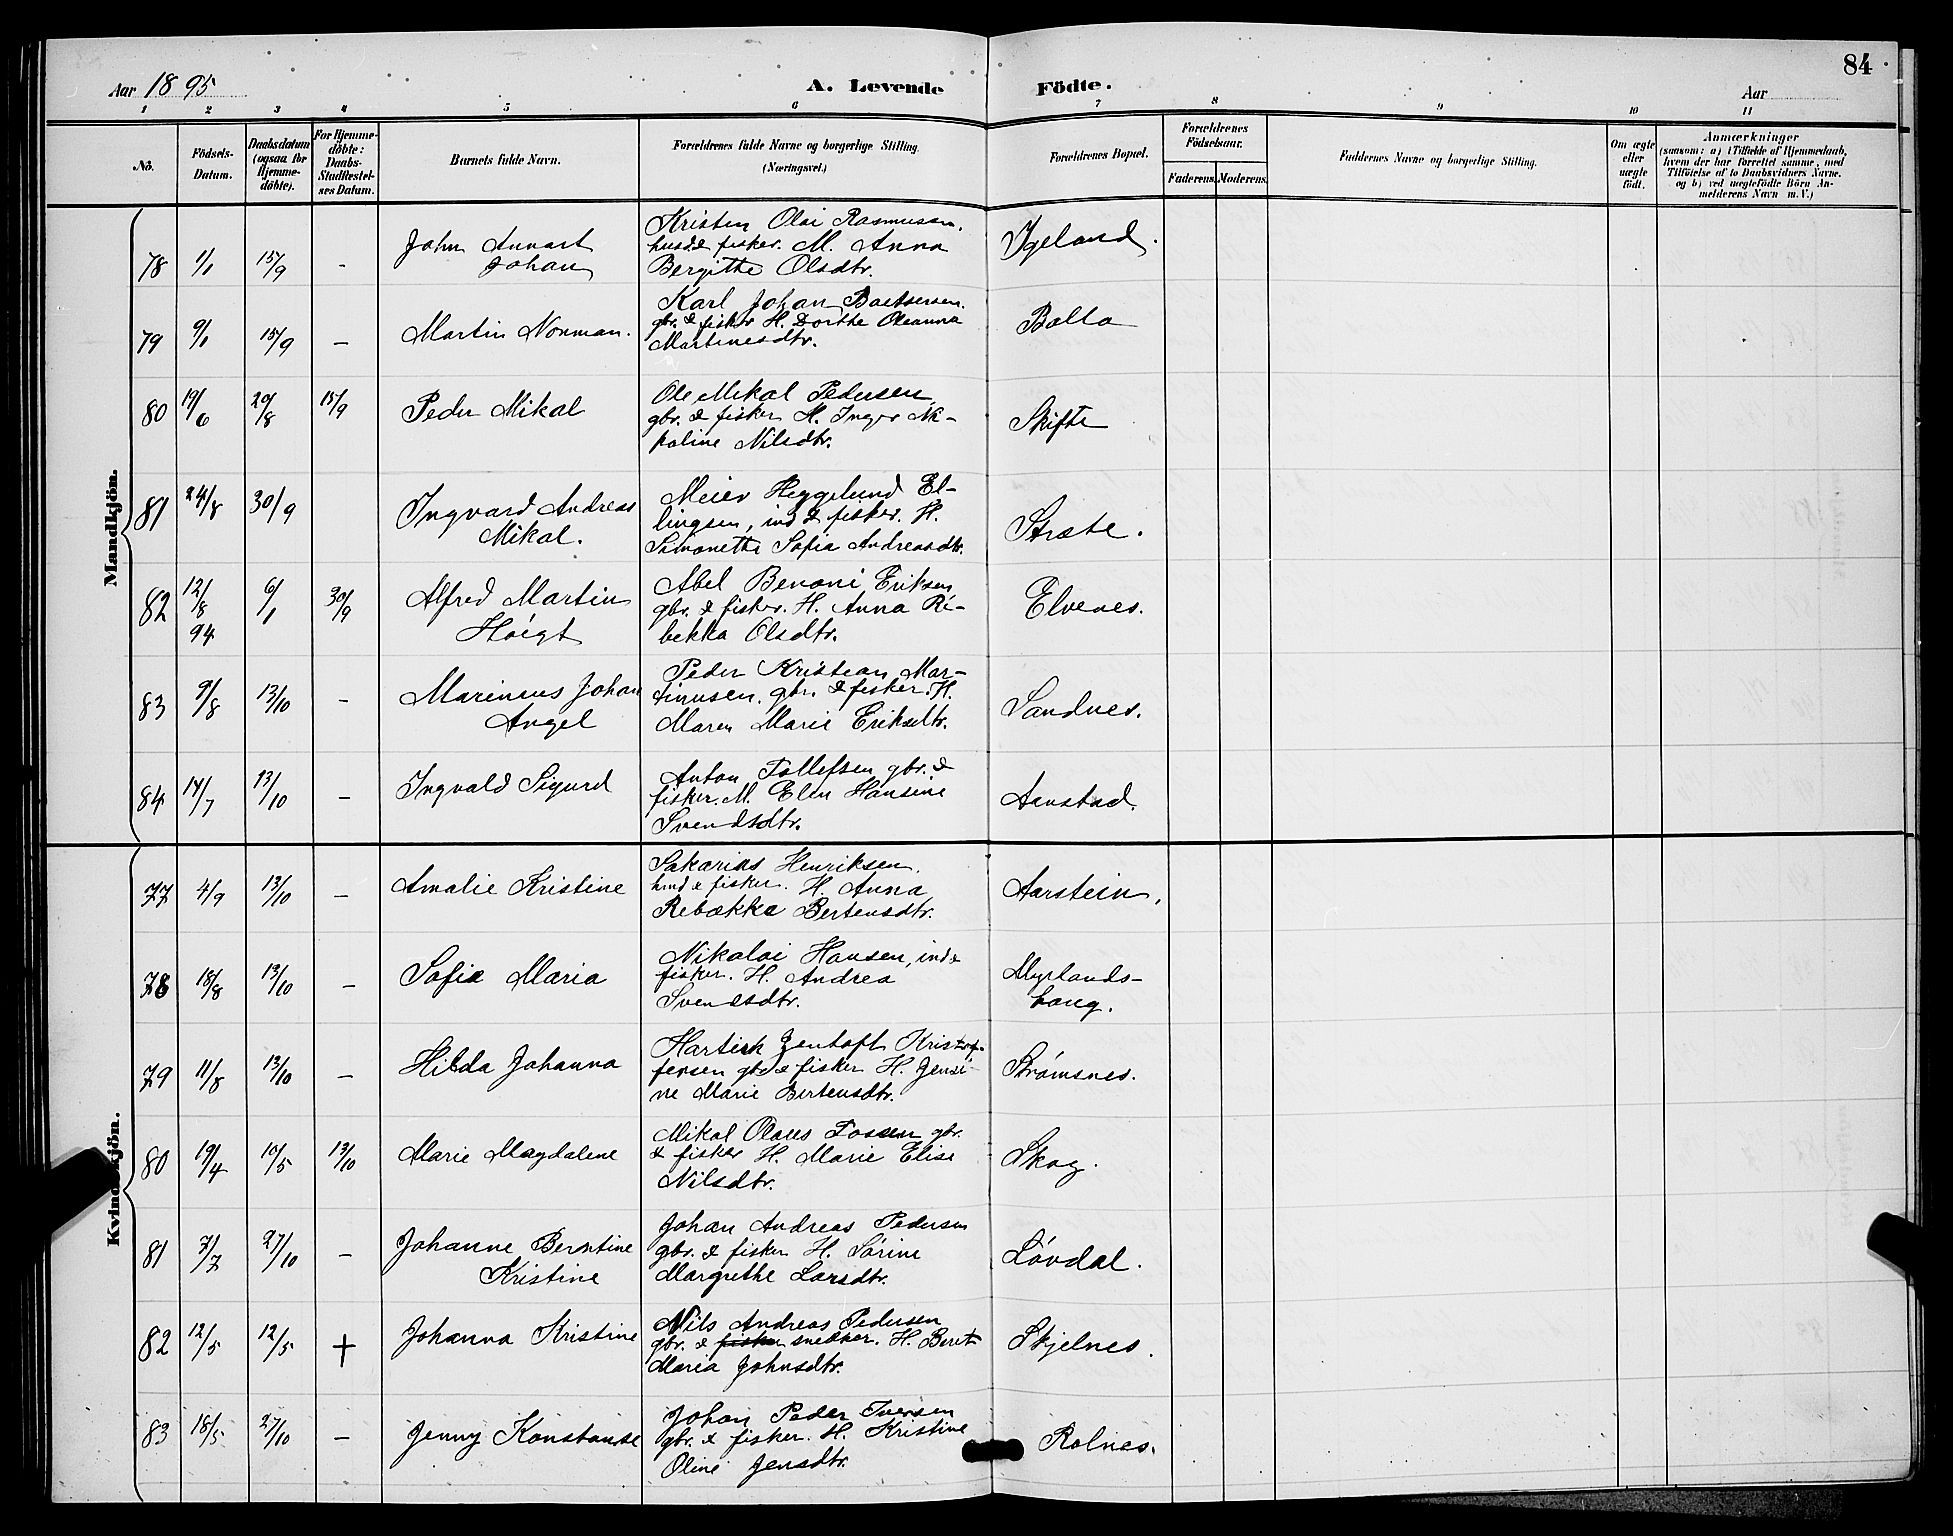 84
Aar 1895
A. Levende Födte.
Aar
1 2 3 4 5 6 7 8 9 10 11
No.
Födsels-Datum.
Daabsdatum (ogsaa for Hjemme-döbte).
For Hjemme-döbte: Daabs-Stadfæstel-ses Datum.
Barnets fulde Navn.
Forældrenes fulde Navne og borgerlige Stilling. (Næringsvei.)
Forældrenes Bopæl.
Forældrenes Födselsaar.
Faderens. Moderens.
Faddernes Navne og borgerlige Stilling.
Om ægte eller uægte födt.
Anmærkninger
(saasom: a) i Tilfælde af Hjemmedaab,
hvem der har forrettet samme, med
Tilföielse af to Daabsvidners Navne.
og b) ved uægtefödte Börn An-
melderens Navn m. V.)
Mandkjön.
78 1/1 15/9 - John Annart Johan
Kristen Olai Rasmussen.
husd & fisker. M. Anna
Bergitte Olsdtr.
Ygeland.
79 9/1 15/9 - Martin Norman.
Karl Johan
gbr. & fisker H. Dorthe Oleanna
Martinesdtr.
Balla
80 19/6 20/8 15/9 Peder Mikal
Ole Mikal Pedersen,
gbr. & fisker M. Inger Ni-
koline Nilsdtr.
Skifte
81 24/8 30/9 Ingvard Andreas Mikal.
Meier Heggelund El-
lingsen, ind & fisker. H.
Simonette Sofia Andreasdtr.
Stræte.
82 12/8 94 6/1 30/9 Alfred Martin Höigt
Abel Benoni Eriksen
gbr. & fisker. H. Anna Re-
bekka Olsdtr.
Elvenes.
83 9/8 13/10 - Marineus Johan Angel
Peder Kristian Mar-
tinusen, gbr. & fisker. H.
Maren Marie Eriksdtr.
Sandnes.
84 14/7 13/10 - Ingvald Sigurd
Anton Tollefsen gbr. &
fisker. M. Elen Hansine
Svendsdtr.
Aanstad.
Kvindekjön.
77 4/9 13/10 - Amalie Kristine
Sakarias Henriksen.
husd & fisker. H. Anna
Rebækka Bertensdtr.
Aarstein.
78 18/8 13/10 - Sofie Maria
Nikolai Hansen, ind &
fisker. H. Andrea
Svendsdtr.
Myrlands-
haug.
79 11/8 13/10 - Hilda Johanna
Hartvik Jentoft Kristof-
fersen gbr & fisker H. Jensi-
ne Marie Bertensdtr.
Strømsnes.
80 19/4 10/5 13/10 Marie Magdalene
Mikal Olaus Fossen gbr.
& fisker H. Marie Elise
Nilsdtr.
Skog.
81 7/7 27/10 - Johanne Berntine Kristine
Johan Andreas Pedersen
gbr. & fisker H. Sörine
Margrethe Larsdtr.
Lövdal.
82 12/5 12/5 + Johanna Kristine
Nils Andreas Pedersen
gbr. & fisker snedker. H. Beret
Maria Johnsdtr.
Skjelnes.
83 18/5 27/10 - Jenny Konstanse
Johan Peder Iversen
gbr. & fisker. H. Kristine
Oline Jensdtr.
Rolnes.